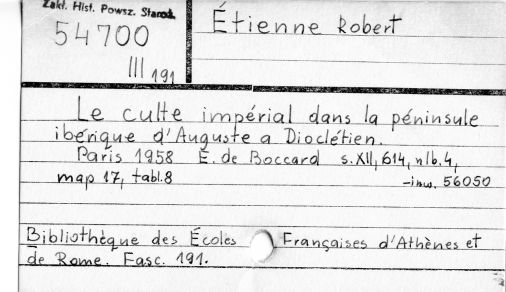 Zakł. Hist. Powsz. Staroż.
54700
III 191
Étienne Robert
Le culte impérial dans la péninsule
ibérique d'Auguste a Dioclétien.
Paris 1958 E. de Boccard s. XII, 614, nlb. 4,
map 17, tabl. 8 -inw. 56050
Bibliothèque des Écoles Françaises d'Athènes et
de Rome. Fasc. 191.